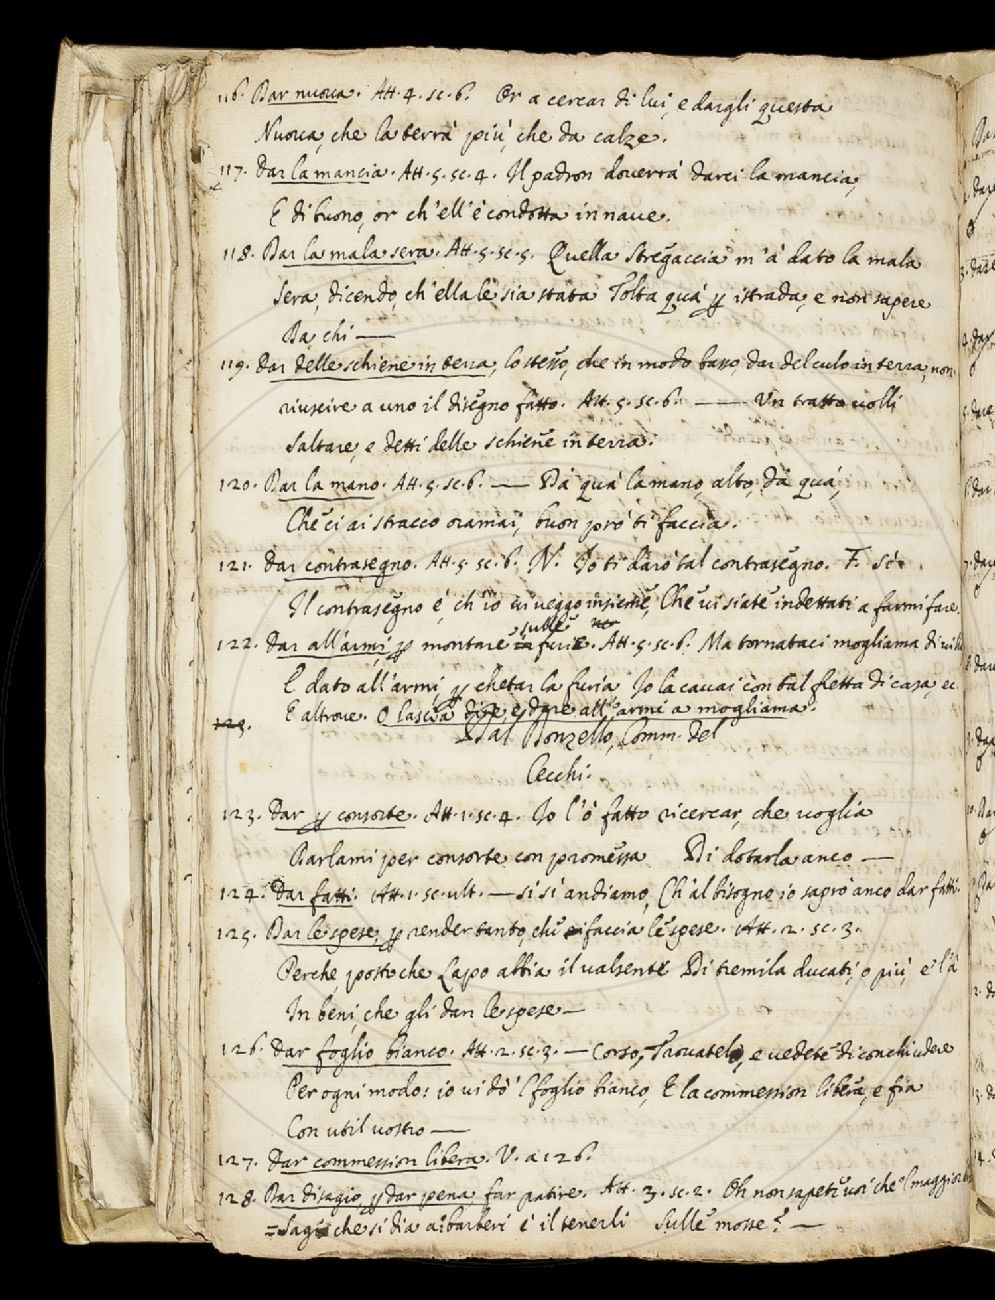 116. Dar nuova. Att. 4. sc. 6. Or a cercar di lui, e dargli questa
Nuova, che la terrà più, che da calze.
117. Dar la mancia. Att. 5. sc. 4. Il padron doverrà darci la mancia,
E di buono, or ch'ell'è condotta in nave.
118. Dar la mala sera. Att. 5. sc. 5. Quella stregaccia m'à dato la mala
Sera, dicendo, ch'ella le sia stata Tolta quà p istrada, e non sapere
Da chi —
119. Dar delle schiene in terra, lo stesso, che in modo basso, dar del culo in terra, non
riuscire a uno il disegno fatto. Att. 5. sc. 6. — Un tratto volli
Saltare, e detti delle schiene in terra.
120. Dar la mano. Att. 5. sc. 6. — Dà quà la mano, alto, dà quà,
Che ci ai stracco oramai, buon prò ti faccia.
121. Dar contrasegno. Att. 5. sc. 6. N. Io ti darò tal contrasegno. F. Sì.
Il contrasegno è, ch'io vi veggo insieme, Che vi siate indettati a farmi fare
122. Dar all'armi, p montare sulle furie. Att. 5. sc. 6. Ma tornataci mogliama di
E dato all'armi, p chetar la furia Io la cavai con tal fretta di casa, ec.
E altrove. O lascia dire, e dare all'armi a mogliama.
123.
Dal Donzello, Comm. del
Cecchi.
123. Dar p consorte. Att. 1. sc. 4. Io l'ò fatto ricercar, che voglia
Darlami per consorte con promessa Di dotarla anco —
124. Dar fatti. Att. 1. sc. ult. — Sì sì andiamo, Ch'al bisogno io saprò anco dar fatti.
125. Dar le spese, p render tanto, che si faccia le spese. Att. 2. sc. 3.
Perche, posto che Lapo abbia il valsente Di tremila ducati, o più, e' l'à
In beni, che gli dan le spese —
126. Dar foglio bianco. Att. 2. sc. 3. — Corso, Trovatelo, e vedete di conchiudere
Per ogni modo: io vi dò 'l foglio bianco, E la commession libera, e fia
Con util vostro —
127. Dar commession libera. V. a 126.
128. Dar disagio, p dar pena, far patire. Att. 3. sc. 2. Oh non sapete voi che 'l maggior
=Sagio che si dia a' barberi è il tenerli Sulle mosse? —